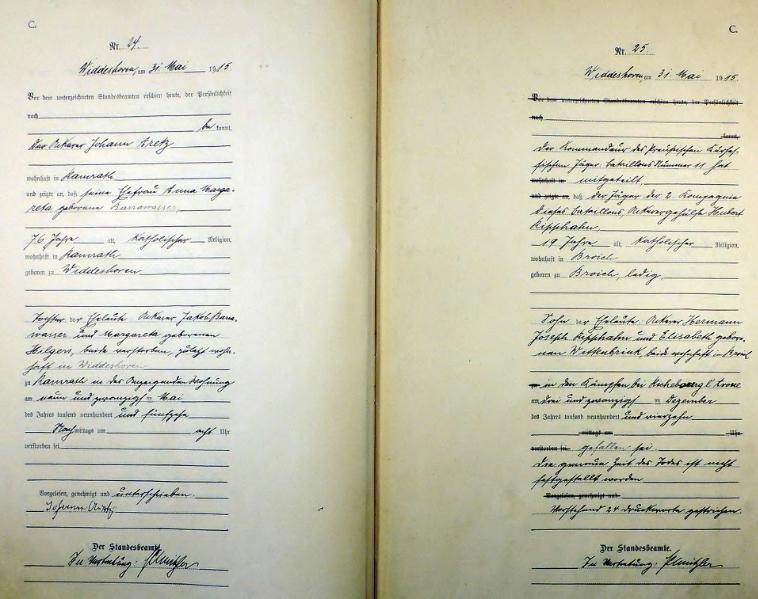 C.
Nr. 24.
Widdeshoven, am 31. Mai 1915.
Vor dem unterzeichneten Standesbeamten erschien heute, der Persönlichkeit
nach
be kannt,
der Ackerer Johann Aretz
wohnhaft in Ramrath
und zeigte an, daß seine Ehefrau Anna Marga-
reta geborene
76 Jahre alt, katholischer Religion,
wohnhaft in Ramrath
geboren zu Widdeshoven
Tochter der Eheleute Ackerer Jakob
wasser und Margareta geborenen
Hilgers, beide verstorben, zuletzt wohn-
haft in Widdeshoven
zu Ramrath in des Anzeigenden Wohnung
am neun und zwanzigsten Mai
des Jahres tausend neunhundert und fünfzehn
Nachmittags um acht Uhr
verstorben sei.
Vorgelesen, genehmigt und unterschrieben.
Johann Aretz
Der Standesbeamte.
In Vertretung:
C.
Nr. 25.
Widdeshoven, am 31. Mai 1915.
Vor dem unterzeichneten Standesbeamten erschien heute, der Persönlichkeit
nach
kannt,
Der Kommandeur des Preußischen Kurhes-
sischen Jäger-Bataillons Nummer 11 hat
wohnhaft in mitgeteilt,
und zeigte an, daß der Jäger der 2. Kompagnie
dieses Bataillons, Ackerergehülfe Hubert
19 Jahre alt, katholischer Religion,
wohnhaft in Broich
geboren zu Broich, ledig,
Sohn der Eheleute Ackerer Hermann
Joseph und Elisabeth gebore-
nen beide wohnhaft in Broich
zu in den Kämpfen bei Richebourg l'Avoué
am drei und zwanzigsten Dezember
des Jahres tausend neunhundert und vierzehn
mittags um Uhr
verstorben sei. gefallen sei.
Die genaue Zeit des Todes ist nicht
festgestellt worden
Vorgelesen, genehmigt und
Vorstehend 24 Druckworte gestrichen.
Der Standesbeamte.
In Vertretung: